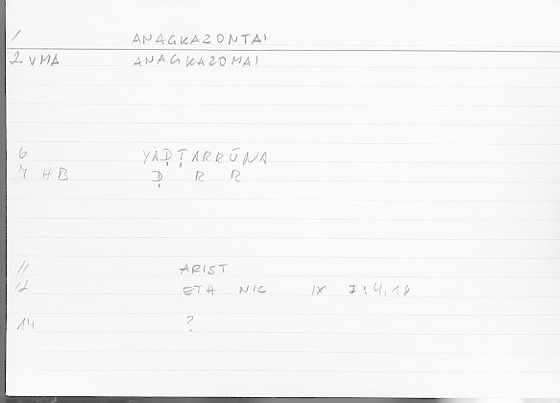 1 ANAGKAZONTAI
2 VMA ANAGKAZOMAI
6 YAḌṬARRŪNA
7 HB Ḍ R R
11 ARIST
12 ETH NIC IX 7;4,18
14 ?